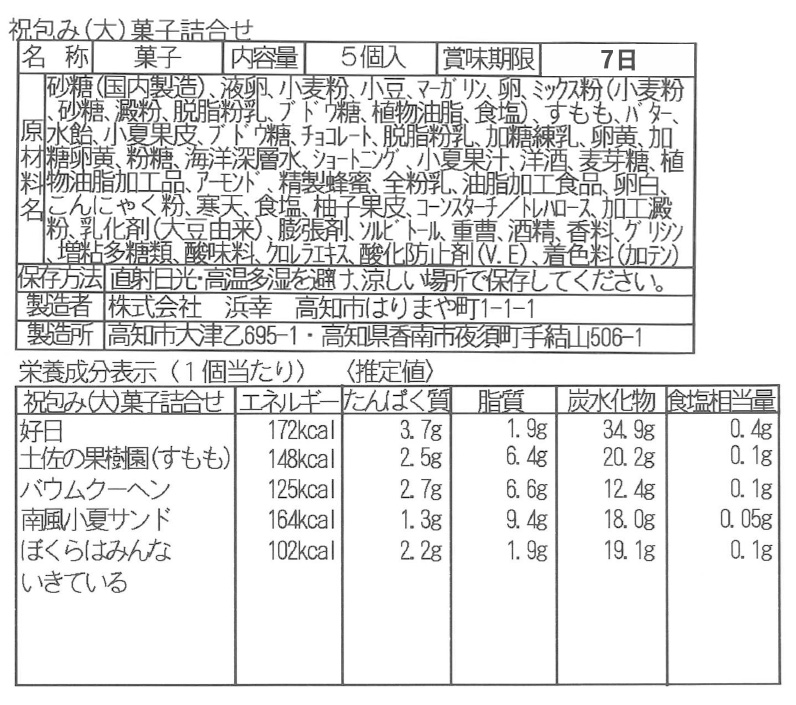 祝包み(大)菓子詰合せ
名 称 菓子 内容量 5個入 賞味期限 7日
原材料名
砂糖(国内製造)、液卵、小麦粉、小豆、マーガリン、卵、ミックス粉(小麦粉
、砂糖、澱粉、脱脂粉乳、ブドウ糖、植物油脂、食塩)、すもも、バター、
水飴、小夏果皮、ブドウ糖、チョコレート、脱脂粉乳、加糖練乳、卵黄、加
糖卵黄、粉糖、海洋深層水、ショートニング、小夏果汁、洋酒、麦芽糖、植
物油脂加工品、アーモンド、精製蜂蜜、全粉乳、油脂加工食品、卵白、
こんにゃく粉、寒天、食塩、柚子果皮、コーンスターチ/トレハロース、加工澱
粉、乳化剤(大豆由来)、膨張剤、ソルビトール、重曹、酒精、香料、グリシン
、増粘多糖類、酸味料、クロレラエキス、酸化防止剤(V.E)、着色料(カロテン)
保存方法 直射日光・高温多湿を避け、涼しい場所で保存してください。
製造者 株式会社 浜幸 高知市はりまや町1-1-1
製造所 高知市大津乙695-1・高知県香南市夜須町手結山506-1
栄養成分表示(1個当たり) 〈推定値〉
祝包み(大)菓子詰合せ エネルギー たんぱく質 脂質 炭水化物 食塩相当量
好日 172kcal 3.7g 1.9g 34.9g 0.4g
土佐の果樹園(すもも) 148kcal 2.5g 6.4g 20.2g 0.1g
バウムクーヘン 125kcal 2.7g 6.6g 12.4g 0.1g
南風小夏サンド 164kcal 1.3g 9.4g 18.0g 0.05g
ぼくらはみんな 102kcal 2.2g 1.9g 19.1g 0.1g
いきている